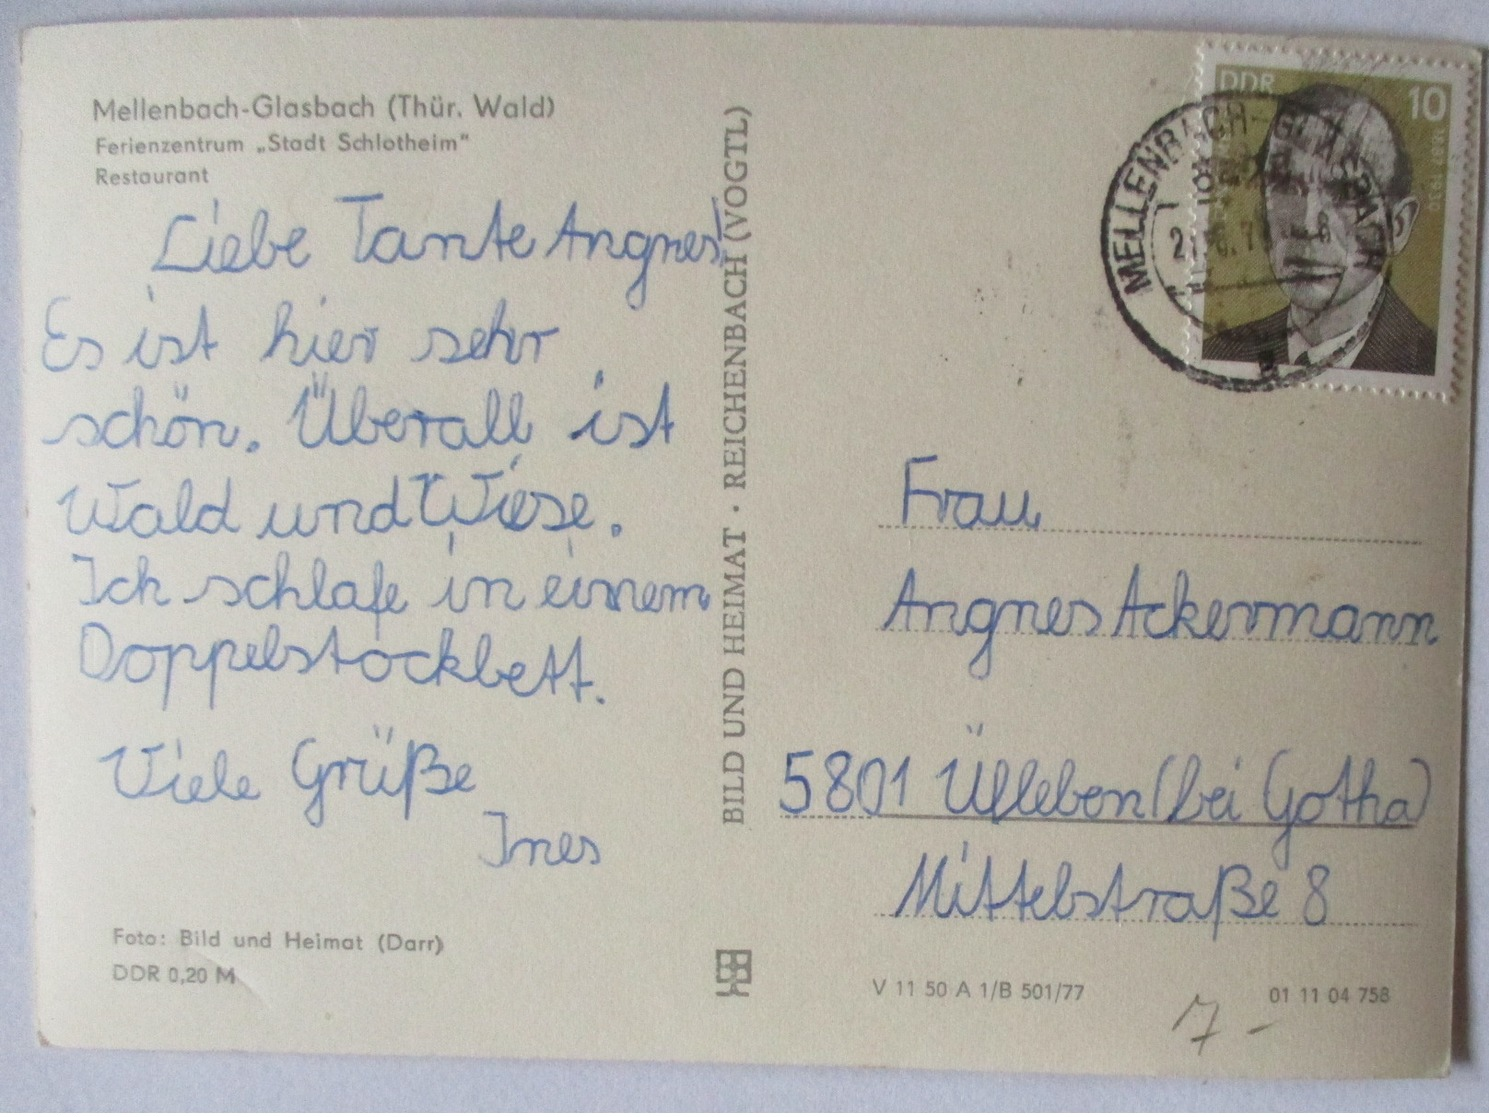 Mellenbach-Glasbach (Thür. Wald)
Ferienzentrum „Stadt Schlotheim"
Restaurant
Liebe Tante Angnes!
Es ist hier sehr
schön. Überall ist
Wald und Wiese.
Ich schlafe in einem
Doppelstockbett.
Viele Grüße
Ines
Foto: Bild und Heimat (Darr)
DDR 0,20 M
BILD UND HEIMAT · REICHENBACH (VOGTL)
DDR
10
MELLENBACH-GLASBACH
Frau
Angnes Ackermann
5801 Ülleben (bei Gotha)
Mittelstraße 8
V 11 50 A 1/B 501/77
01 11 04 758
7 -